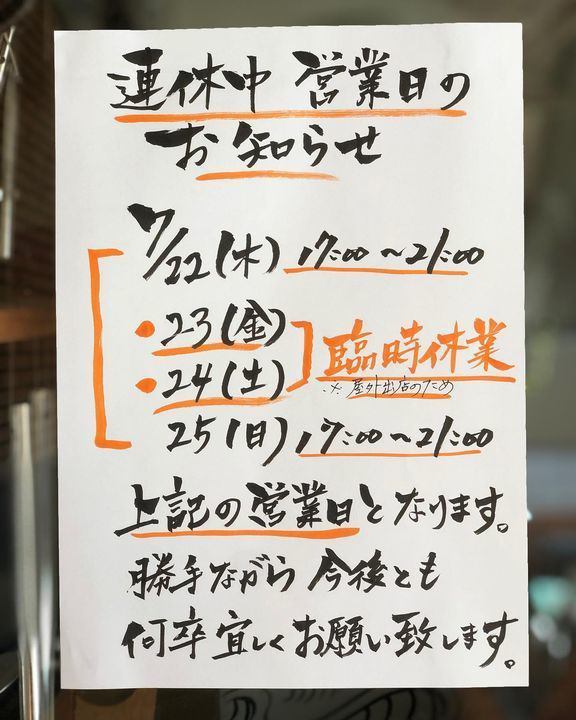 連休中 営業日の
お知らせ
7/22(木) 17:00〜21:00
・23(金)
・24(土)
臨時休業
※屋外出店のため
25(日) 17:00〜21:00
上記の営業日となります。
勝手ながら 今後とも
何卒宜しくお願い致します。